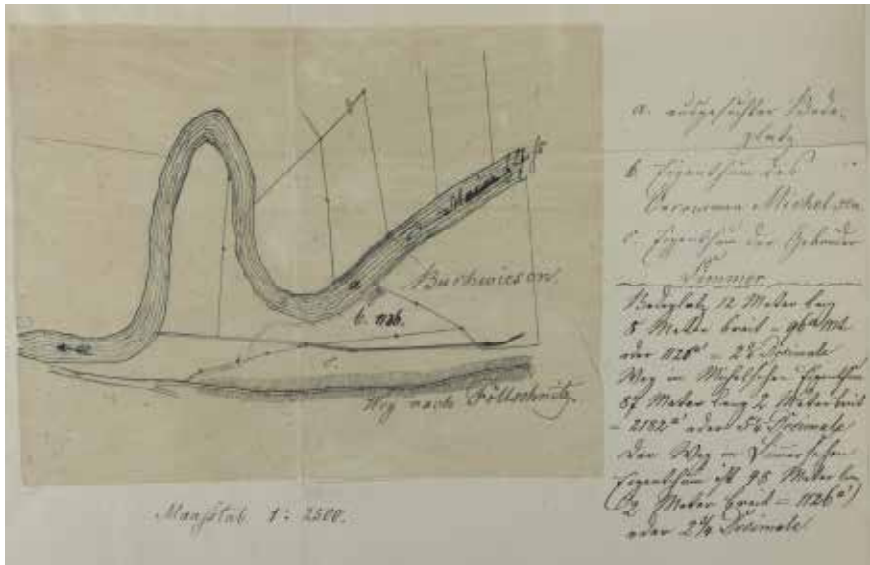 Main
a.
Burkwiesen.
b. 1126.
c.
Weg nach Föllschnitz.
Maaßstab 1 : 2500.
a. ausgesuchter Bade-
platz
b. Eigenthum des
Michel
c. Eigenthum der Gebrüder
Simmer
Badeplatz 12 Meter lang
8 Meter breit = 96 □ mt
oder 1126 □' = 2¾ Decimale
Weg im Michelschen Eigenthum
87 Meter lang 2 Meter breit
= 2182 □' oder 5¼ Decimale
Der Weg im Simmerschen
Eigenthum ist 95 Meter lang
Meter breit = 1126 □')
oder 2¾ Decimale